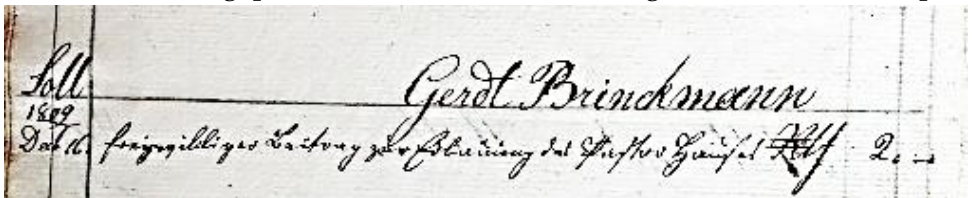 Soll
Gerdt Brinckmann
1809
Dat d. freywilliger Beitrag zur Erbauung des Pastor Hauses Rthl 2. –